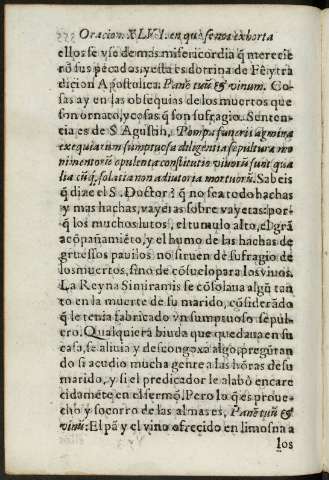 Oracion XLVI. en que se nos exhorta
ellos se vse de mas misericordia q̃ merecie
rõ sus pecados, y esta es dotrina de Fê y tra
dicion Apostolica. Panẽ tuũ & vinum. Co-
sas ay en las obsequias de los muertos que
son ornato, y cosas q̃ son sufragio. Senten-
cia es de S. Agustin, Pompa funeris agmina
exequiarum sumptuosa diligentia sepulturæ mo
nimentorũ opulenta constitutio viuorũ sunt qua
lia cũq́; solatia non adiutoria mortuorũ. Sabeis
q̃ dize el S. Doctor? q̃ no sea todo hachas
y mas hachas, vayetas sobre vayetas: por-
q̃ los muchos lutos, el tumulo alto, el grã
acõpañamiẽto, y el humo de las hachas de
gruessos pauilos no siruen de sufragio de
los muertos, sino de cõsuelo para los viuos.
La Reyna Simiramis se cõsolaua algũ tan
to en la muerte de su marido, cõsiderãdo
q̃ le tenia fabricado vn sumptuoso sepul-
cro. Qualquiera biuda que quedaua en su
casa, se aliuia y descongoxa algo, pregũtan
do si acudio mucha gente a las hõras de su
marido, y si el predicador le alabò encare
cidamẽte en el sermõ. Pero lo q̃ es proue-
cho y socorro de las almas es, Panẽ tuũ &
vinũ: El pã y el vino ofrecido en limosna a
los